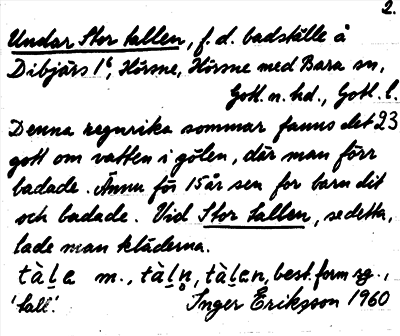 2.
Undar Stor tallen, f.d. badställe å
Dibjärs 1⁶, Hörsne, Hörsne med Bara sn,
Gotl. n. hd., Gotl. l.
Denna regnrika sommar fanns det 23
gott om vatten i gölen, där man förr
badade. Ännu för 15 år sen for barn dit
och badade. Vid Stor tallen, se detta,
lade man kläderna.
tàl̠a m., tàl̠n̥, tàl̠en, best. form sg.,
'tall'. Inger Eriksson 1960